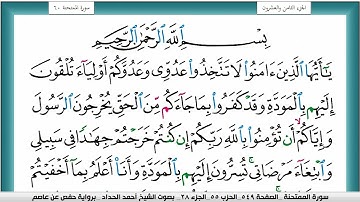 الجزء الثامن والعشرون
سورة الممتحنة ٦٠
بِسْمِ ٱللَّهِ ٱلرَّحْمَٰنِ ٱلرَّحِيمِ
يَٰٓأَيُّهَا ٱلَّذِينَ ءَامَنُوا۟ لَا تَتَّخِذُوا۟ عَدُوِّى وَعَدُوَّكُمْ أَوْلِيَآءَ تُلْقُونَ
إِلَيْهِم بِٱلْمَوَدَّةِ وَقَدْ كَفَرُوا۟ بِمَا جَآءَكُم مِّنَ ٱلْحَقِّ يُخْرِجُونَ ٱلرَّسُولَ
وَإِيَّاكُمْ أَن تُؤْمِنُوا۟ بِٱللَّهِ رَبِّكُمْ إِن كُنتُمْ خَرَجْتُمْ جِهَٰدًا فِى سَبِيلِى
وَٱبْتِغَآءَ مَرْضَاتِى تُسِرُّونَ إِلَيْهِم بِٱلْمَوَدَّةِ وَأَنَا۠ أَعْلَمُ بِمَآ أَخْفَيْتُمْ
سورة الممتحنة، الصفحة ٥٤٩، الحزب ٥٥، الجزء ٢٨ - بصوت الشيخ أحمد الحداد - برواية حفص عن عاصم